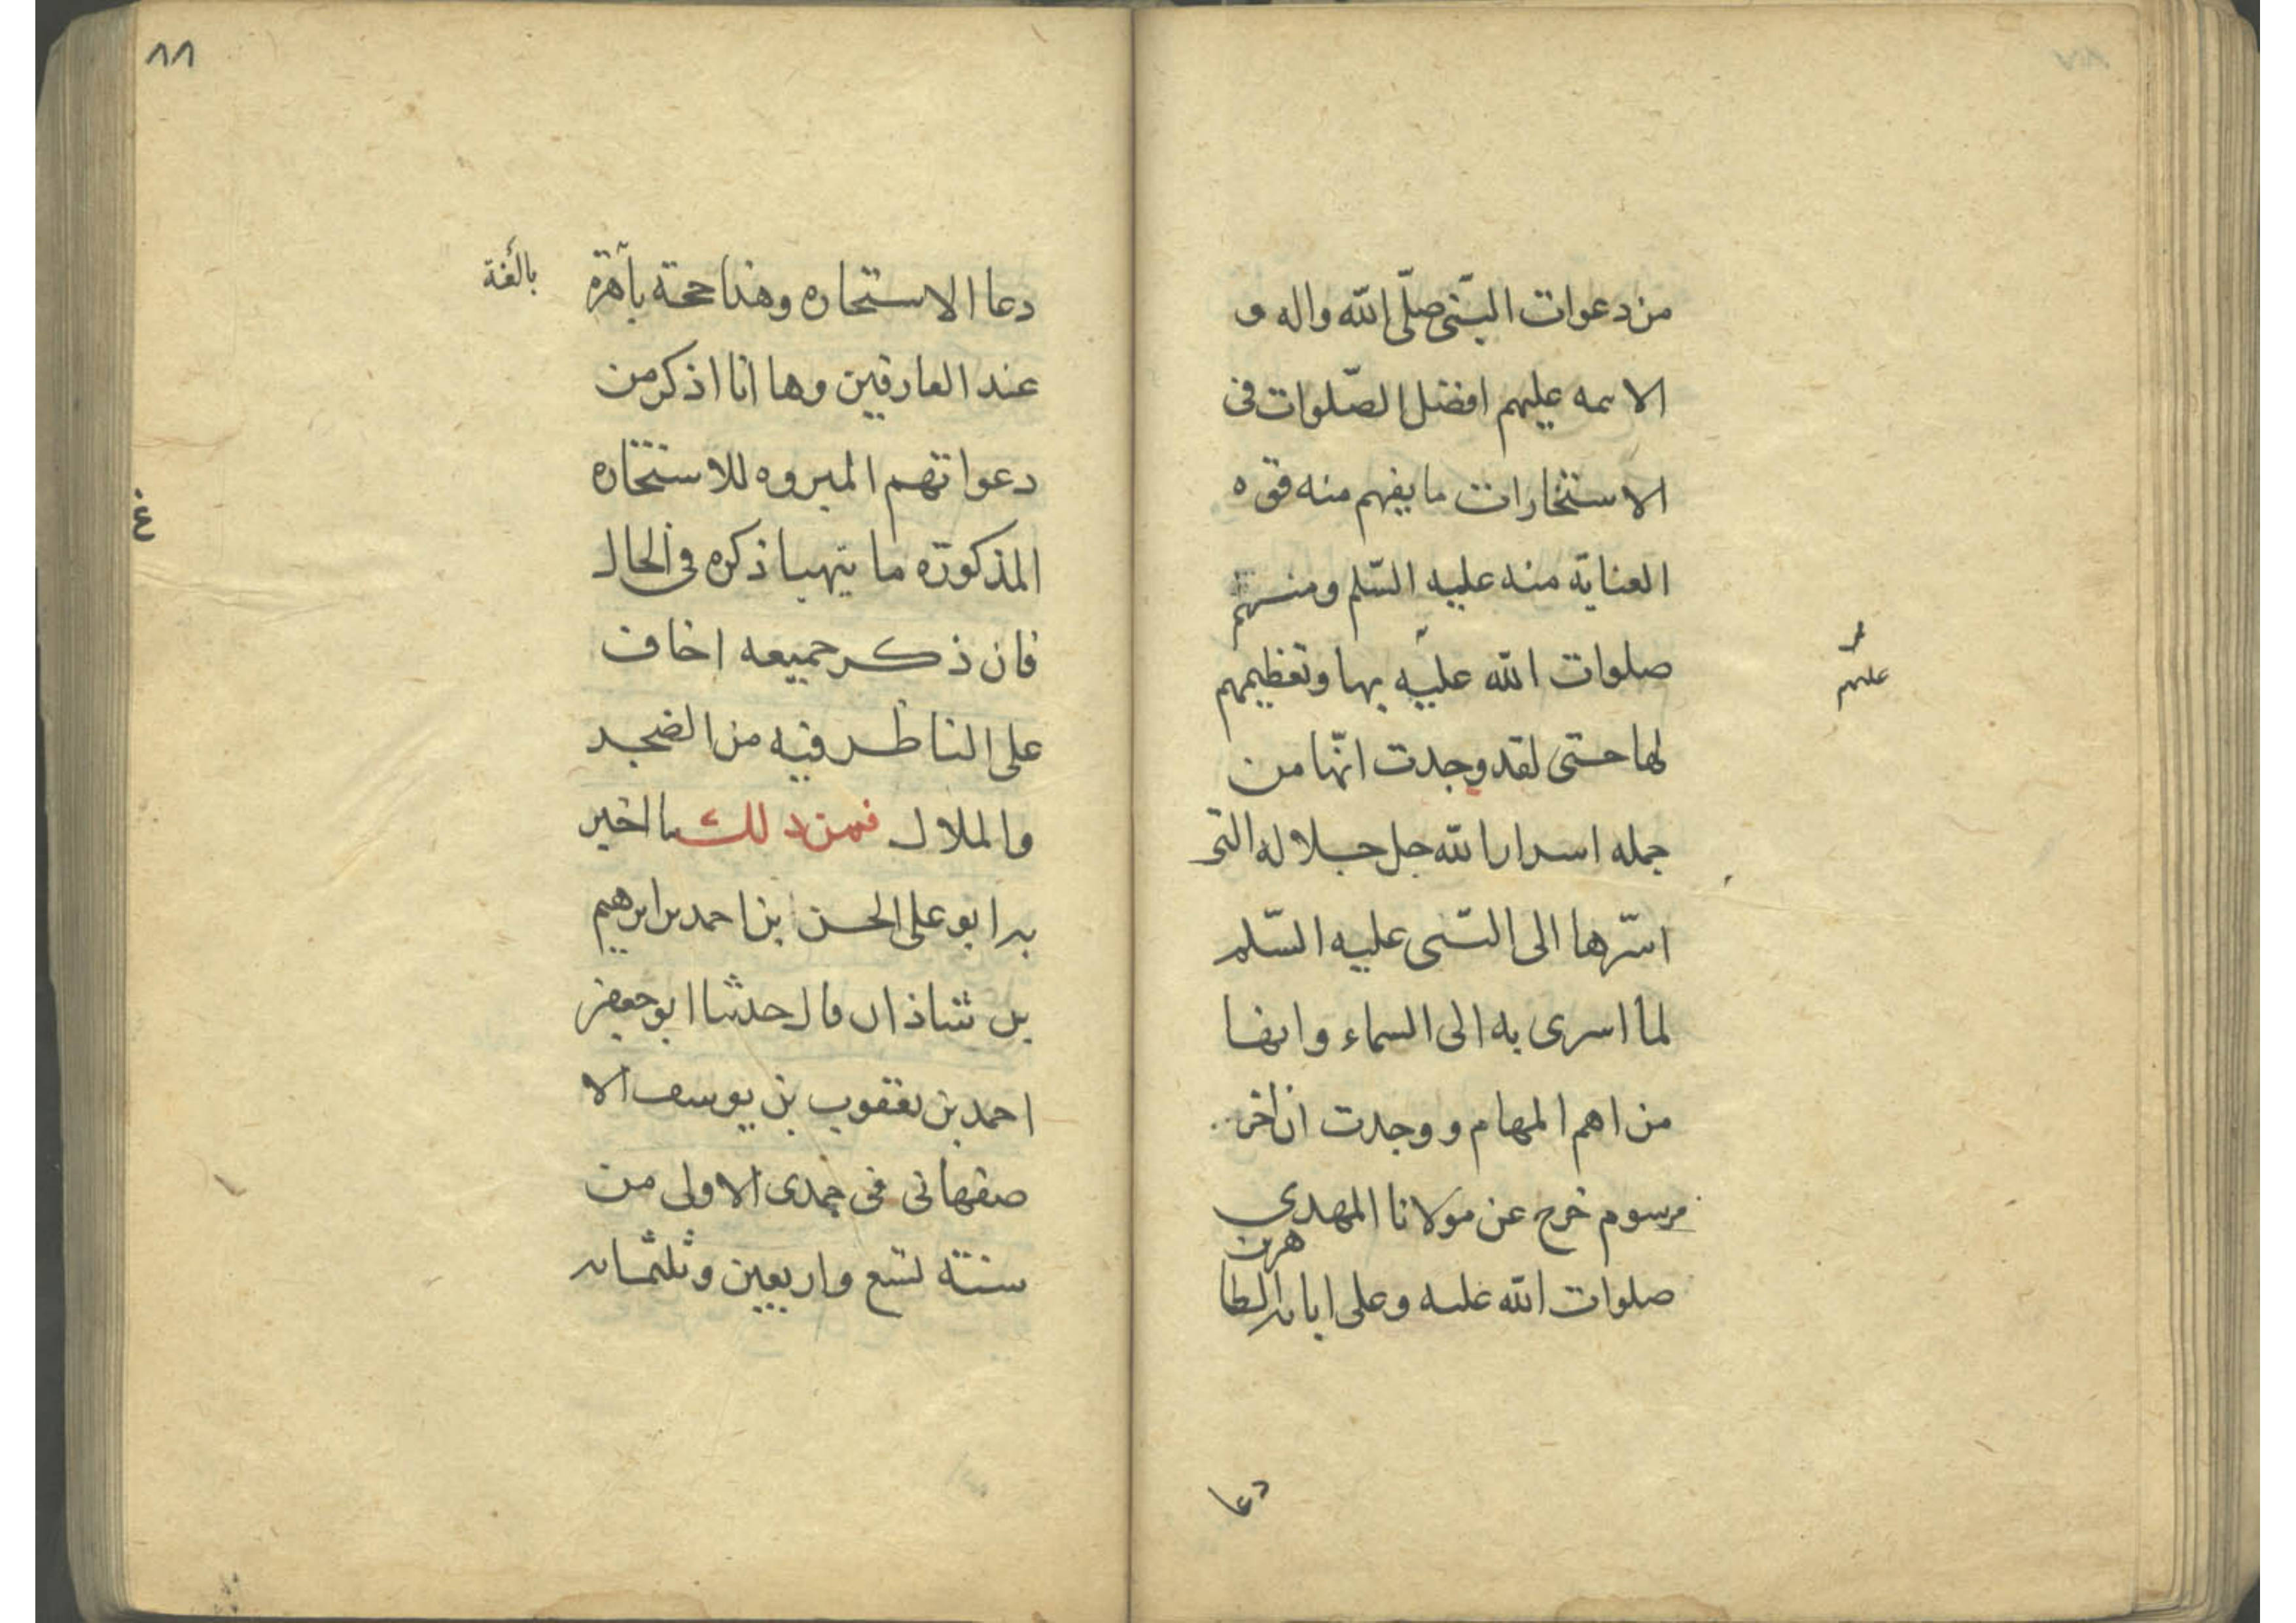 من دعوات النبّى صلّى الله واله و
الاىمه عليهم افضل الصّلوات فى
الاستخارات ما يفهم منه قوه
العناية منه عليه السّلم ومنهم
صلوات الله عليه بها وتعظيمهم
عليهم
لها حتى لقد وجدت انّها من
جمله اسرار الله جل جلاله التى
اسّرها الى النّبى عليه السّلم
لما اسرى به الى السماء وانها
من اهم المهام ووجدت ان اخر
مرسوم خرج عن مولانا المهدي
صلوات الله عليه وعلى ابايه الطا
هرين
دعا
٨٨
دعا الاستخاره وهذا حجة باهرة
بالغة
عند العارفين وها انا اذكر من
دعواتهم المبروه للاستخاره
المذكورة ما يتهيا ذكره فى الحال
فان ذكر جميعه اخاف
على الناظر فيه من الضجر
والملال فمن ذلك ما اخبر
به ابو على الحسن بن احمد بن ابرهيم
بن شاذان قال حدثنا ابو جعفر
احمد بن يعقوب بن يوسف الا
صفهانى فى جمدى الاولى من
سنة تسع واربعين وثلثمايه